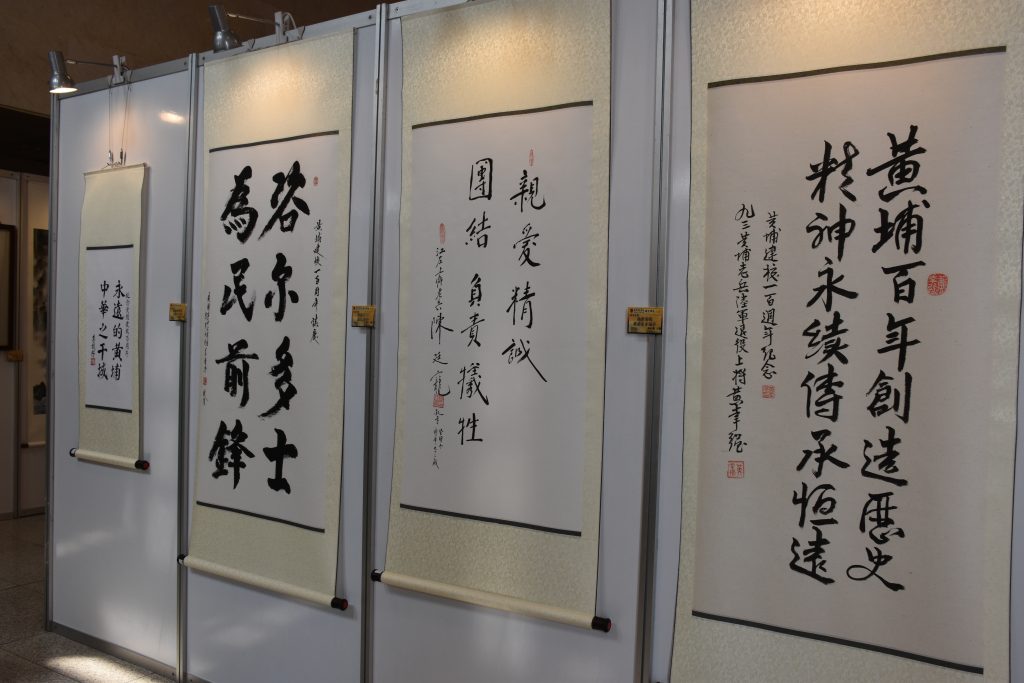 永遠的黃埔
中華之干城
黃埔建校一百周年誌慶
咨尔多士
為民前鋒
親愛精誠
團結 負責 犧牲
陳廷寵
黃埔百年創造歷史
精神永續傳承恒遠
黃埔建校一百週年紀念
九三黃埔老兵陸軍退役上將黃幸強